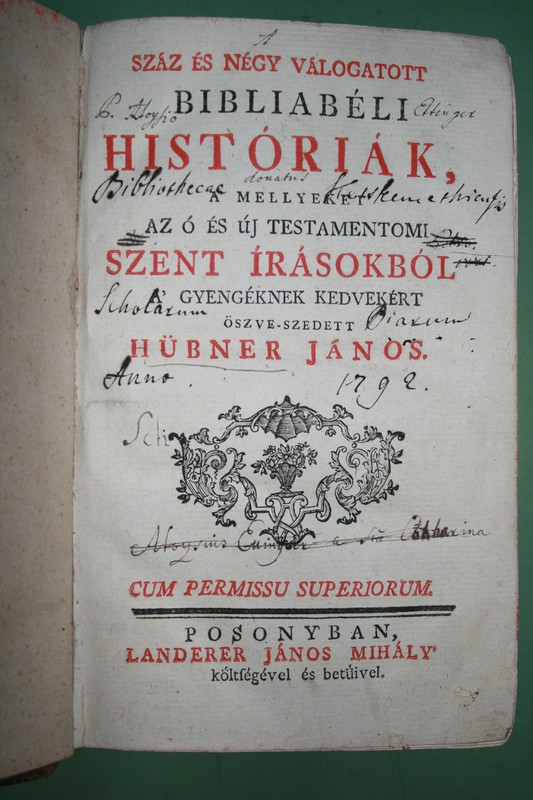 A
SZÁZ ÉS NÉGY VÁLOGATOTT
BIBLIABÉLI
P. Aloysio Ettinger
HISTÓRIÁK,
donatus
Bibliothecae
A MELLYEKET
AZ Ó ÉS ÚJ TESTAMENTOMI
SZENT ÍRÁSOKBÓL
Scholarum Piarum
A' GYENGÉKNEK KEDVEKÉRT
ÖSZVE-SZEDETT
HÜBNER JÁNOS.
Anno 1792.
Aloysius a Catharina
CUM PERMISSU SUPERIORUM.
POSONYBAN,
LANDERER JÁNOS MIHÁLY'
költſégével és betűivel.